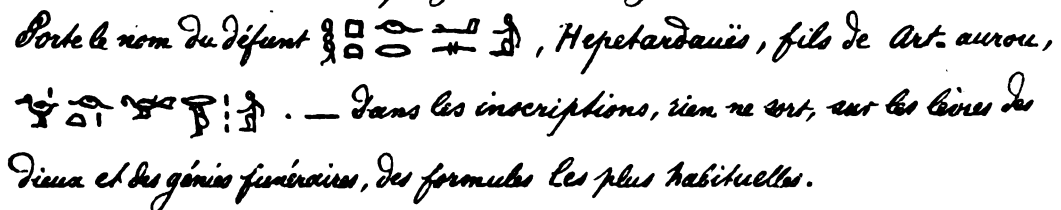 Porte le nom du défunt , Hepetardaüs, fils de Art-aurou,
. — Dans les inscriptions, rien ne sort, sur les lèvres des
Dieux et des génies funéraires, des formules les plus habituelles.